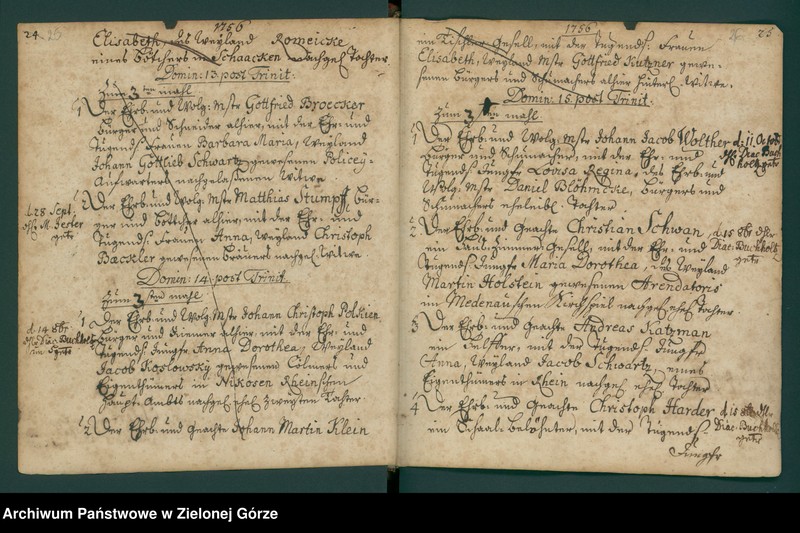 24 25
1756
Elisabeth, des Weyland Romeicke
eines Böttchers in Schaacken nachgel. Tochter.
Domin: 13 post Trinit.
Zum 3ten mahl
1 Der Ehrb. und Wolg. Mstr Gottfried Broecker
Bürger und Schneider alhier, mit der Ehr- und
Tugends. Frauen Barbara Maria, Weyland
Johann Gottlied Schwartz gewesenen Policey-
Aufwarters nachgelassenen Witwe.
2 Der Ehrb. und Wolg. Mstr Matthias Stumpff Bür-
ger und Böttcher alhier, mit der Ehr- und
Tugends. Frauen Anna, Weyland Christoph
Backler gewesenen Brauers nachgel. Witwe
d. 28 Sept.
Domin: 14 post Trinit.
Zum 3ten mahl
1 Der Ehrb. und Wolg. Mstr Johann Christoph Polkien
Bürger und Riemer alhier, mit der Ehr- und
Tugends. Jungfr Anna Dorothea, Weyland
Jacob Koslowsky gewesenen Cölmers und
Eigenthümers in Nikosen Rheinschen
Haupt-Ambts nachgel. ehel. zweyten Tochter.
d. 14 8br
2 Der Ehrb. und Geachte Johann Martin Klein
1756
25
ein Tischler Gesell, mit der Tugends. Frauen
Elisabeth, Weyland Mstr Gottfried Kutzner gewe-
senen Bürgers und Schumachers alhier hinterl. Witwe.
Domin: 15 post Trinit.
Zum 3ten mahl
1 Der Ehrb. und Wolg. Mstr Johann Jacob Wolther
Bürger und Schumacher, mit der Ehr- und
Tugends. Jungfr Lovisa Regina, des Ehrb. und
Wolg. Mstr Daniel Blöhmcke, Bürgers und
Schumachers eheleibl. Tochter.
d. 11 Octobr
2 Der Ehrb. und Geachte Christian Schwan,
ein Zimmer Gesell, mit der Ehr- und
Tugends. Jungfr Maria Dorothea, des Weyland
Martin Holstein gewesenen Arendatoris
im Medenauschen Kirchspiel nachgel. ehel. Tochter.
d. 15 8br
Diac. Buchholtz
3 Der Ehrb. und Geachte Andreas Katzman
ein mit der Tugends. Jungfr
Anna, Weyland Jacob Schwartz, eines
Eigenthümers in Rhein nachgel. ehel. Tochter
4 Der Ehrb. und Geachte Christoph Harder
ein mit der Tugends.
Jungfr
d. 18 8br
Diac. Buchholtz
Archiwum Państwowe w Zielonej Górze